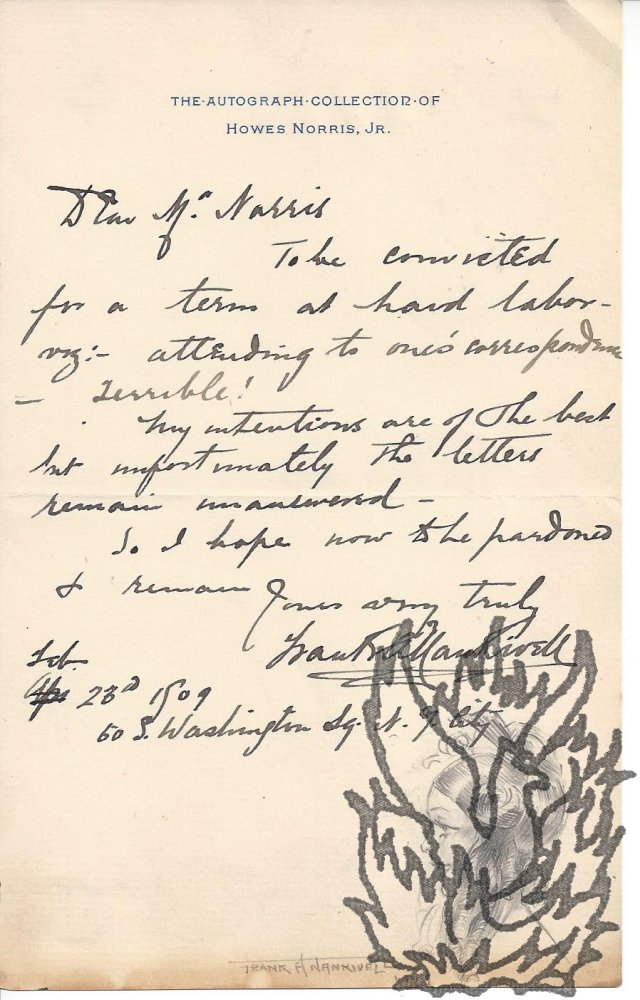 THE·AUTOGRAPH·COLLECTION·OF
HOWES NORRIS, JR.
Dear Mr. Norris
To be convicted
for a term at hard labor –
viz:– attending to one's correspondence
– Terrible!
My intentions are of the best
but unfortunately the letters
remain unanswered –
So I hope now to be pardoned
& remain Yours very truly
Frank A Nankivell
Feb
23d 1909
50 S. Washington Sq. N. Y. City
FRANK A NANKIVELL